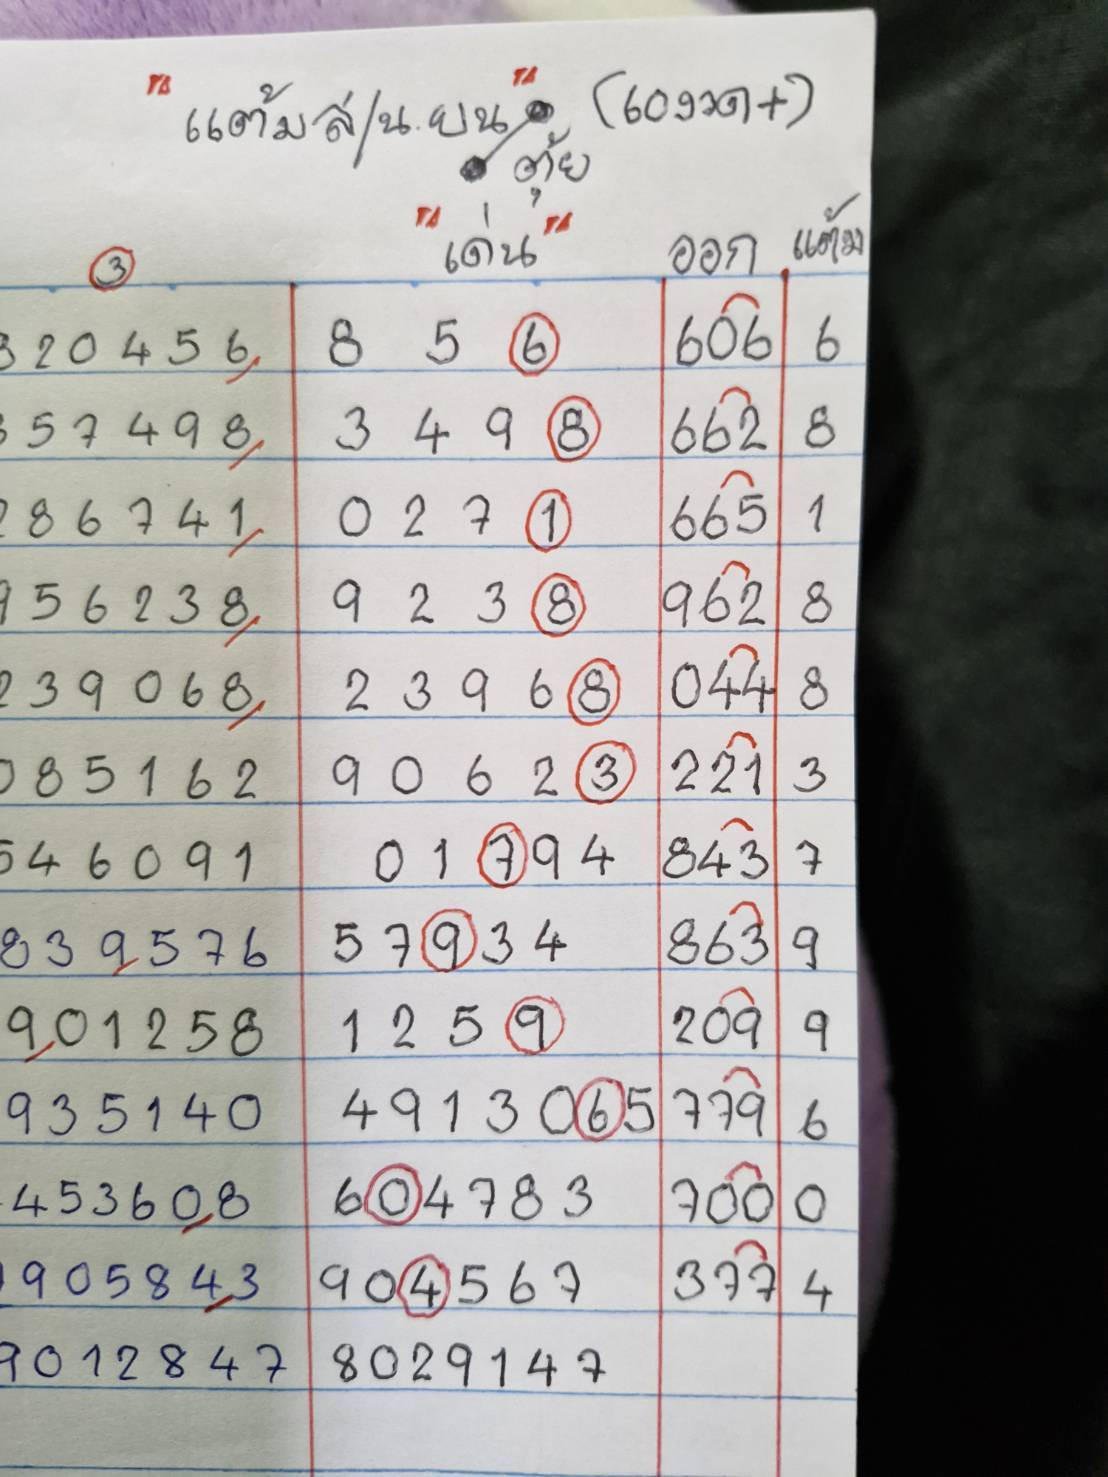 "แต้มล่/น.ยน" (60งวด+)
ตุ้ย
③ "เด่น" ออก แต้ม
320456 8 5 6 606 6
357498 3 4 9 8 662 8
286741 0 2 7 1 665 1
956238 9 2 3 8 962 8
239068 2 3 9 6 8 044 8
085162 9 0 6 2 3 221 3
546091 0 1 7 9 4 843 7
839576 5 7 9 3 4 863 9
901258 1 2 5 9 209 9
935140 4 9 1 3 0 6 5 779 6
453608 6 0 4 7 8 3 700 0
905843 9 0 4 5 6 7 377 4
9012847 8 0 2 9 1 4 7